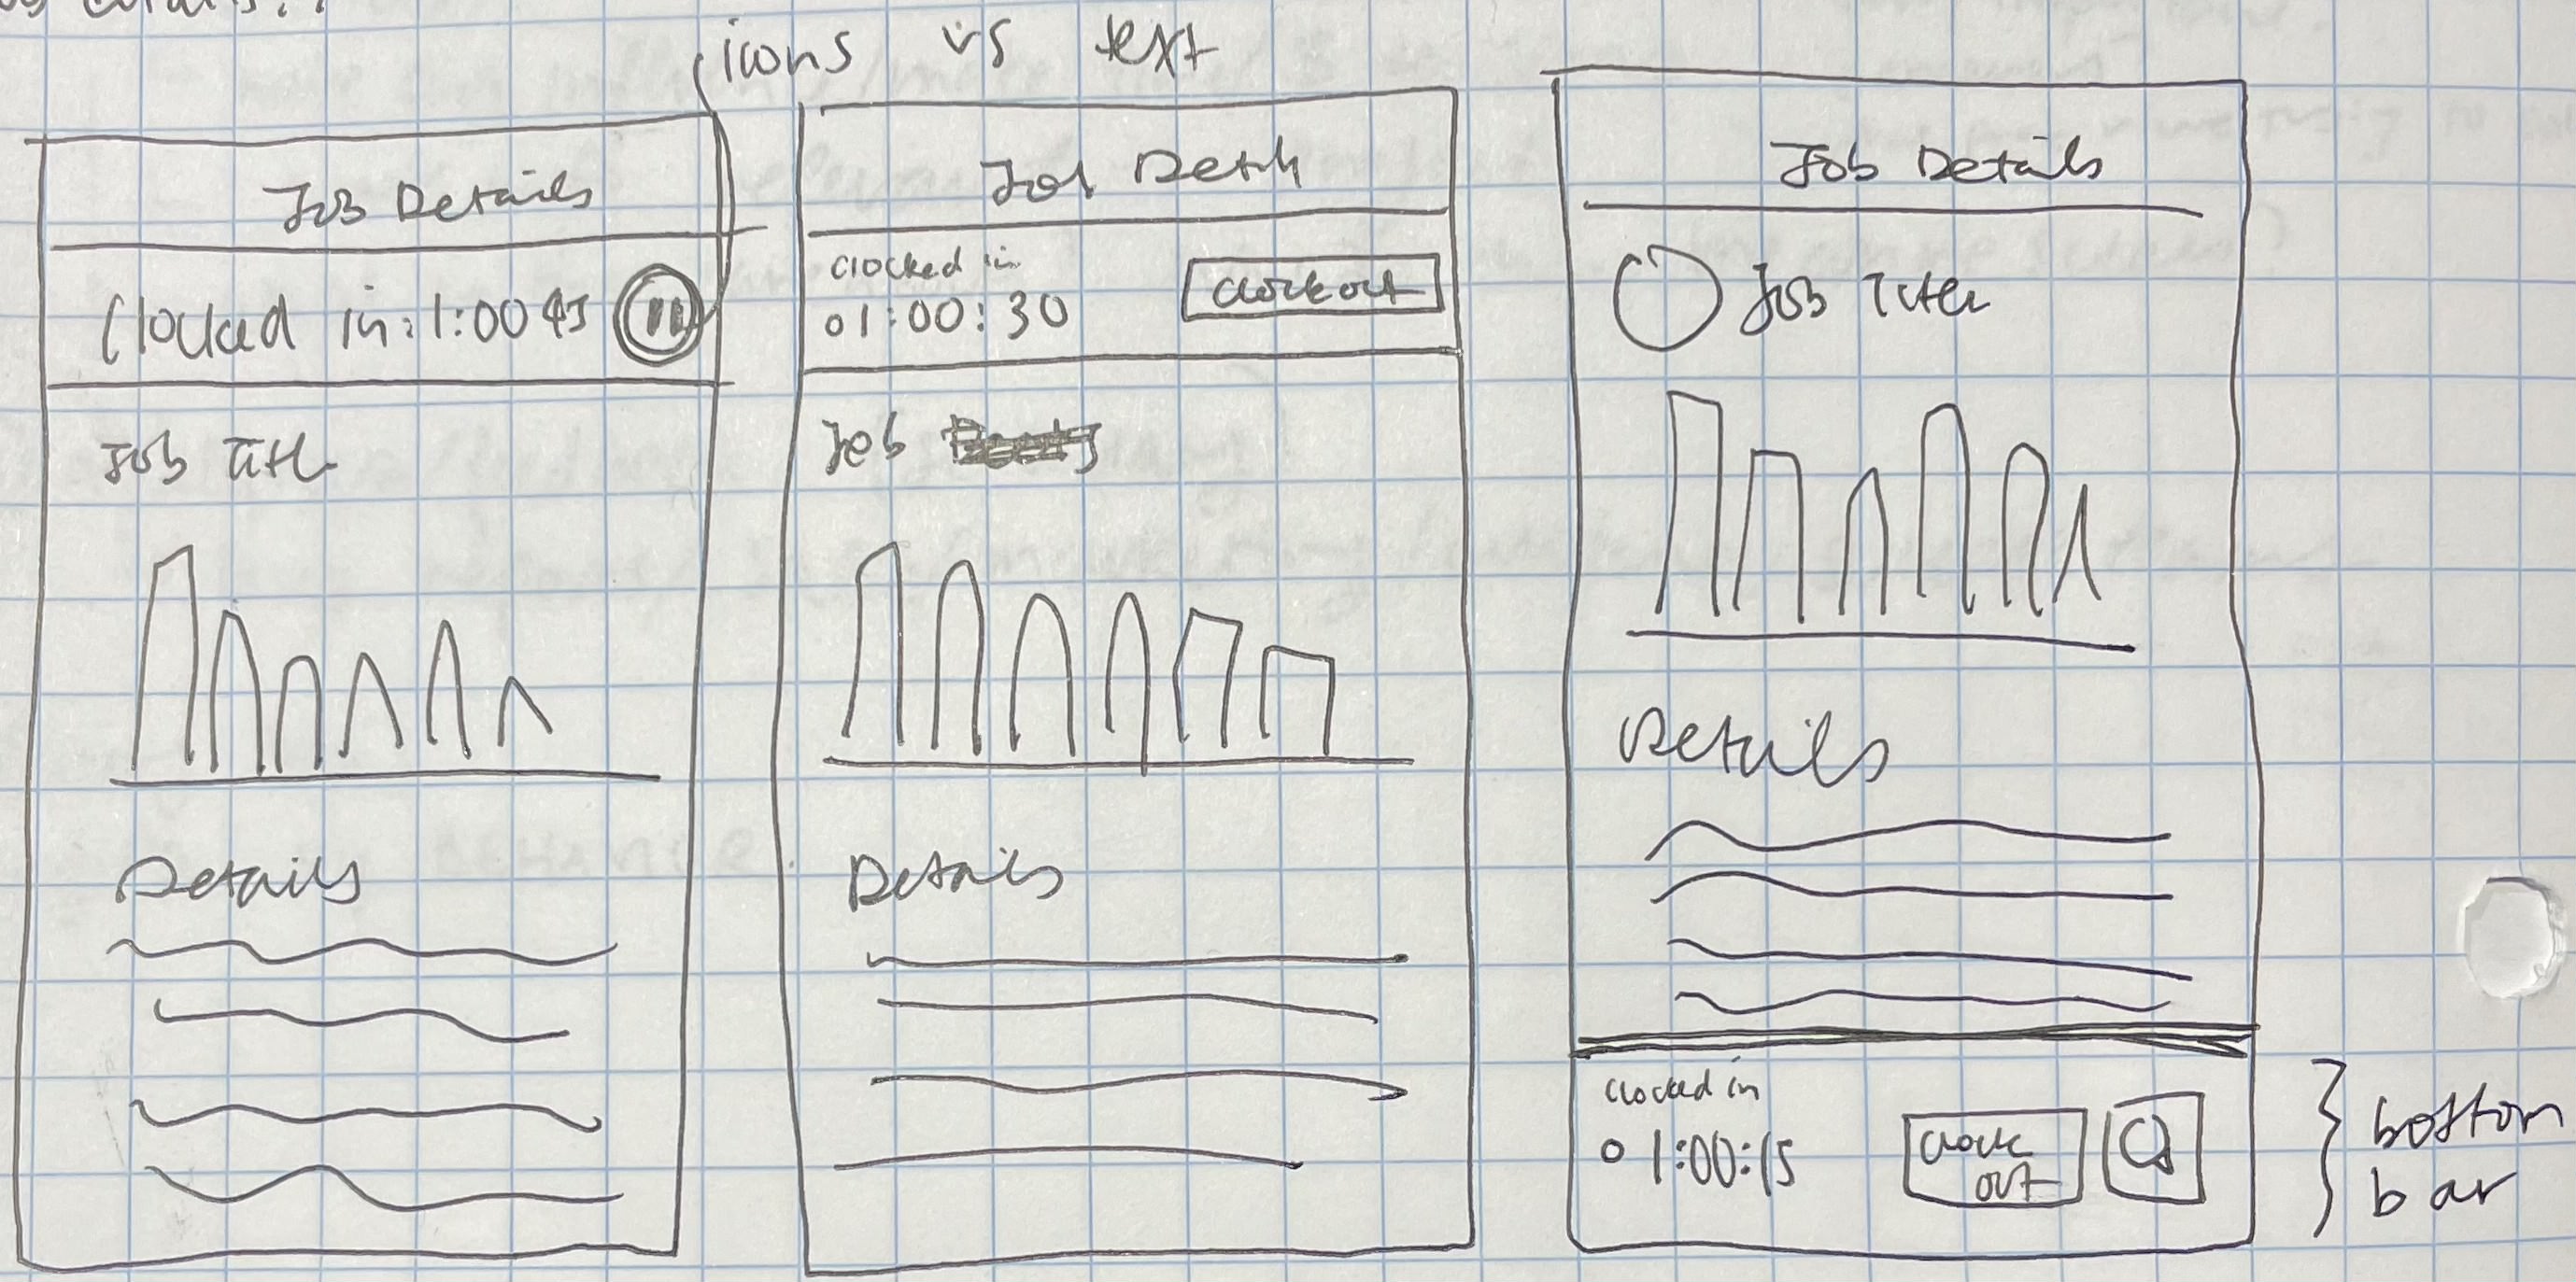 icons vs text
Job Details
Clocked in: 1:00 45
Job Title
Details
Job Details
clocked in
01:00:30
clock out
Job
Details
Job Details
Job Title
Details
clocked in
01:00:15
clock
out
bottom
bar